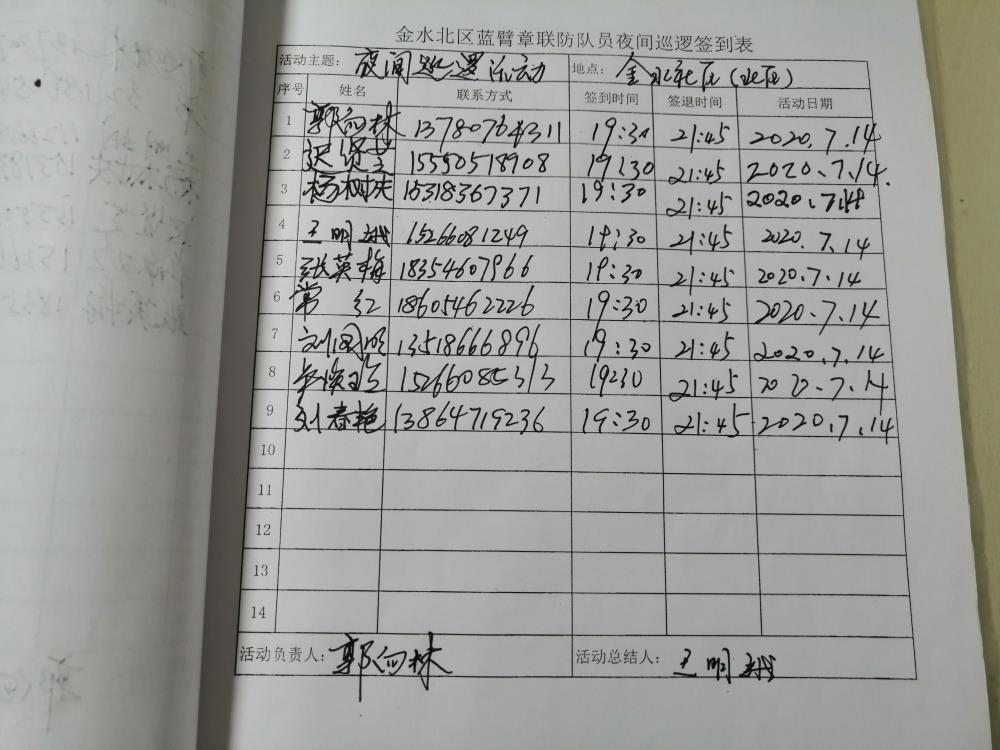 金水北区蓝臂章联防队员夜间巡逻签到表
活动主题: 夜间巡逻活动 地点: 金水北区(北区)
序号 姓名 联系方式 签到时间 签退时间 活动日期
1 郭向林 13780764311 19:30 21:45 2020.7.14
2 15550518908 19:30 21:45 2020.7.14.
3 杨树庆 15318367371 19:30 21:45 2020.7.14
4 王明 15266081249 19:30 21:45 2020.7.14
5 张英梅 18354607966 19:30 21:45 2020.7.14
6 常红 18605462226 19:30 21:45 2020.7.14
7 刘国 13518666896 19:30 21:45 2020.7.14
8 15266085313 19230 21:45 2020.7.14
9 刘春艳 13864719236 19:30 21:45 2020.7.14
10
11
12
13
14
活动负责人: 郭向林 活动总结人: 王明